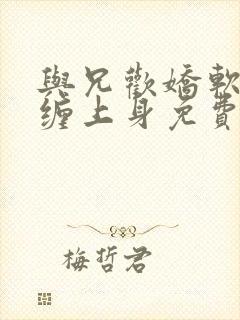 與兄歡嬌軟
纏上身免費
梅哲君